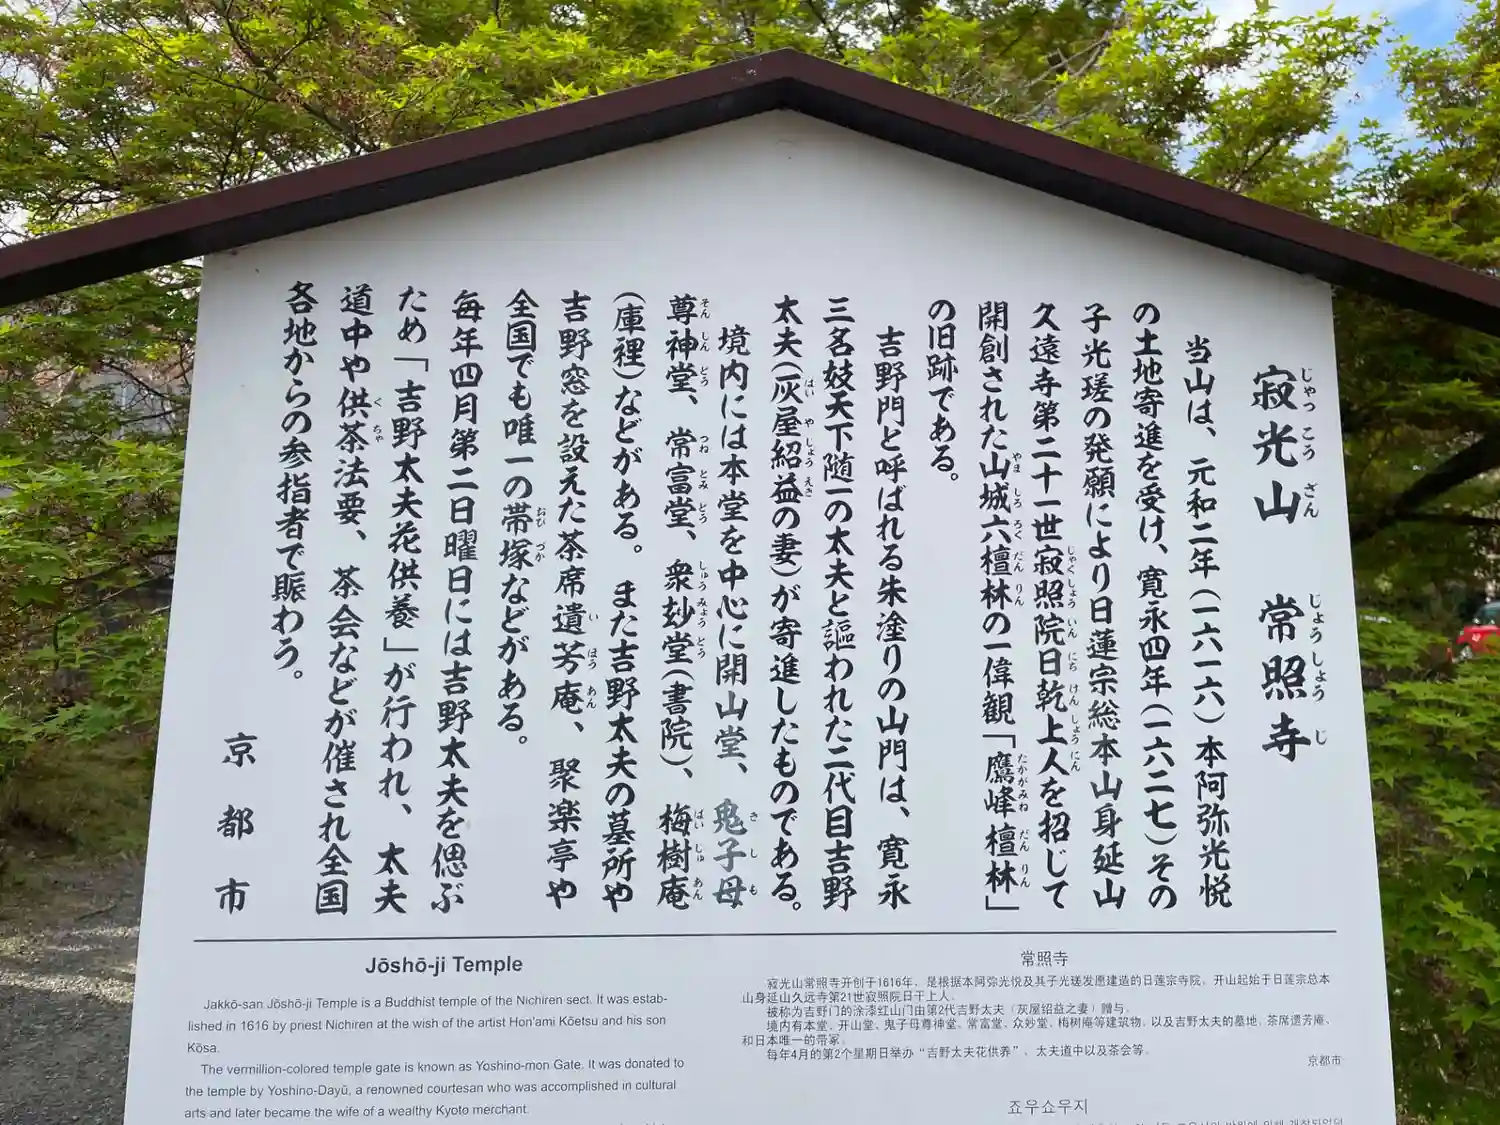 寂光山 常照寺
じゃっ こう ざん じょう しょう じ
当山は、元和二年(一六一六)本阿弥光悦
の土地寄進を受け、寛永四年(一六二七)その
子光瑳の発願により日蓮宗総本山身延山
久遠寺第二十一世寂照院日乾上人を招じて
じゃくしょう いん にち けん しょう にん
開創された山城六檀林の一偉観「鷹峰檀林」
やま しろ ろく だん りん たかがみね だん りん
の旧跡である。
吉野門と呼ばれる朱塗りの山門は、寛永
三名妓天下随一の太夫と謳われた二代目吉野
太夫(灰屋紹益の妻)が寄進したものである。
はい や しょう えき
境内には本堂を中心に開山堂、鬼子母
き し も
尊神堂、常富堂、衆妙堂(書院)、梅樹庵
そん しん どう つね とみ どう しゅう みょう どう ばい じゅ あん
(庫裡)などがある。また吉野太夫の墓所や
吉野窓を設えた茶席遺芳庵、聚楽亭や
い ほう あん
全国でも唯一の帯塚などがある。
おび づか
毎年四月第二日曜日には吉野太夫を偲ぶ
ため「吉野太夫花供養」が行われ、太夫
道中や供茶法要、茶会などが催され全国
く ちゃ
各地からの参指者で賑わう。
京都市
Jōshō-ji Temple
Jakkō-san Jōshō-ji Temple is a Buddhist temple of the Nichiren sect. It was estab-
lished in 1616 by priest Nichiren at the wish of the artist Hon'ami Kōetsu and his son
Kōsa.
The vermillion-colored temple gate is known as Yoshino-mon Gate. It was donated to
the temple by Yoshino-Dayū, a renowned courtesan who was accomplished in cultural
arts and later became the wife of a wealthy Kyoto merchant.
常照寺
寂光山常照寺开创于1616年，是根据本阿弥光悦及其子光瑳发愿建造的日莲宗寺院，开山起始于日莲宗总本
山身延山久远寺第21世寂照院日干上人。
被称为吉野门的涂漆红山门由第2代吉野太夫（灰屋绍益之妻）赠与。
境内有本堂、开山堂、鬼子母尊神堂、常富堂、众妙堂、梅树庵等建筑物，以及吉野太夫的墓地，茶席遗芳庵、
和日本唯一的带冢。
每年4月的第2个星期日举办“吉野太夫花供养”、太夫道中以及茶会等。
京都市
죠우쇼우지